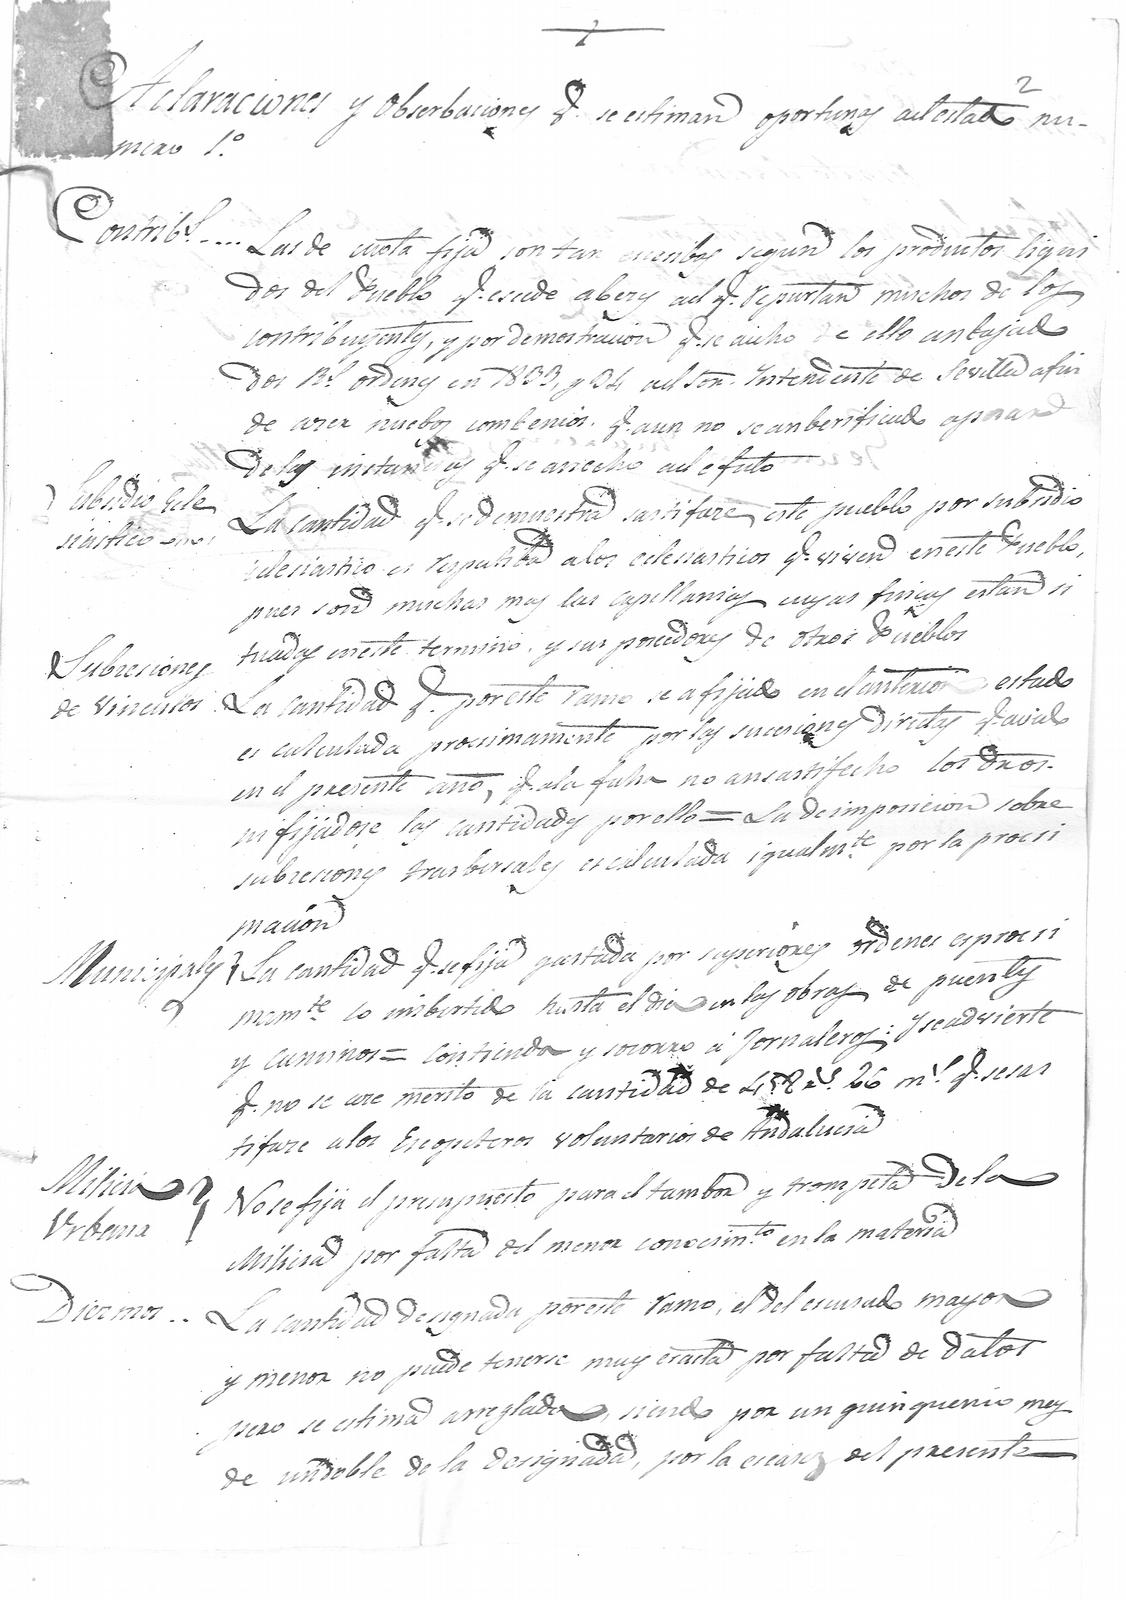 2
Aclaraciones y Obserbaciones q.e se estiman oportunas al estado nu-
mero 1.o
Contrib.s .... Las de cuota fija son tan escribas segun los productos liqui
dos del Pueblo q.e esede abezes al q.e repartan muchos de los
contribuyentes, y por demostracion q.e se aicho de ello an bajado
dos R.s ordenes en 1833, y 34 al Sor. Intendente de Sevilla afin
de azer nuebos combenios. q.e aun no se an berificado apesar
de las instancias q.e se an echo al efecto
Subsidio Ecle
siastico
La cantidad q.e se demuestra sastiface este pueblo por subsidio
eclesiastico es respectiba a los eclesiasticos q.e viven en este Pueblo,
pues son muchas mas las capellanias cuyas fincas estan si
tuadas en este termino, y sus poseedores de otros Pueblos
Subresiones
de vinculos
La cantidad q.e por este ramo se a fijado en el anterior estado
es calculada procsimamente por las sucesiones directas q.e a avido
en el presente año, q.e a la fecha no an sastifecho los dros.
ni fijadose las cantidades por ello = La de imposicion sobre
subresiones trasbersales es calculada igualm.te por la procsi
macion
Municipales
La cantidad q.e se fija gastada por superiores ordenes es procsi
mam.te lo imbertido hasta el dia en las obras de puentes
y caminos = contienda y socorro á Jornaleros; y se advierte
q.e no se ace merito de la cantidad de r.s 26 m.s q.e se sas
tiface a los Escopeteros voluntarios de Andalucia
Milicia
Urbana
No se fija el presupuesto para el tambor y trompeta de la
Milicia por falta del menor conocim.to en la materia
Diezmos ..
La cantidad designada por este ramo, el del escusado mayor
y menor no puede tenerse muy esacta por falta de datos
pero se estima arreglada, siendo por un quinquenio mas
de un doble de la designada, por la escasez del presente